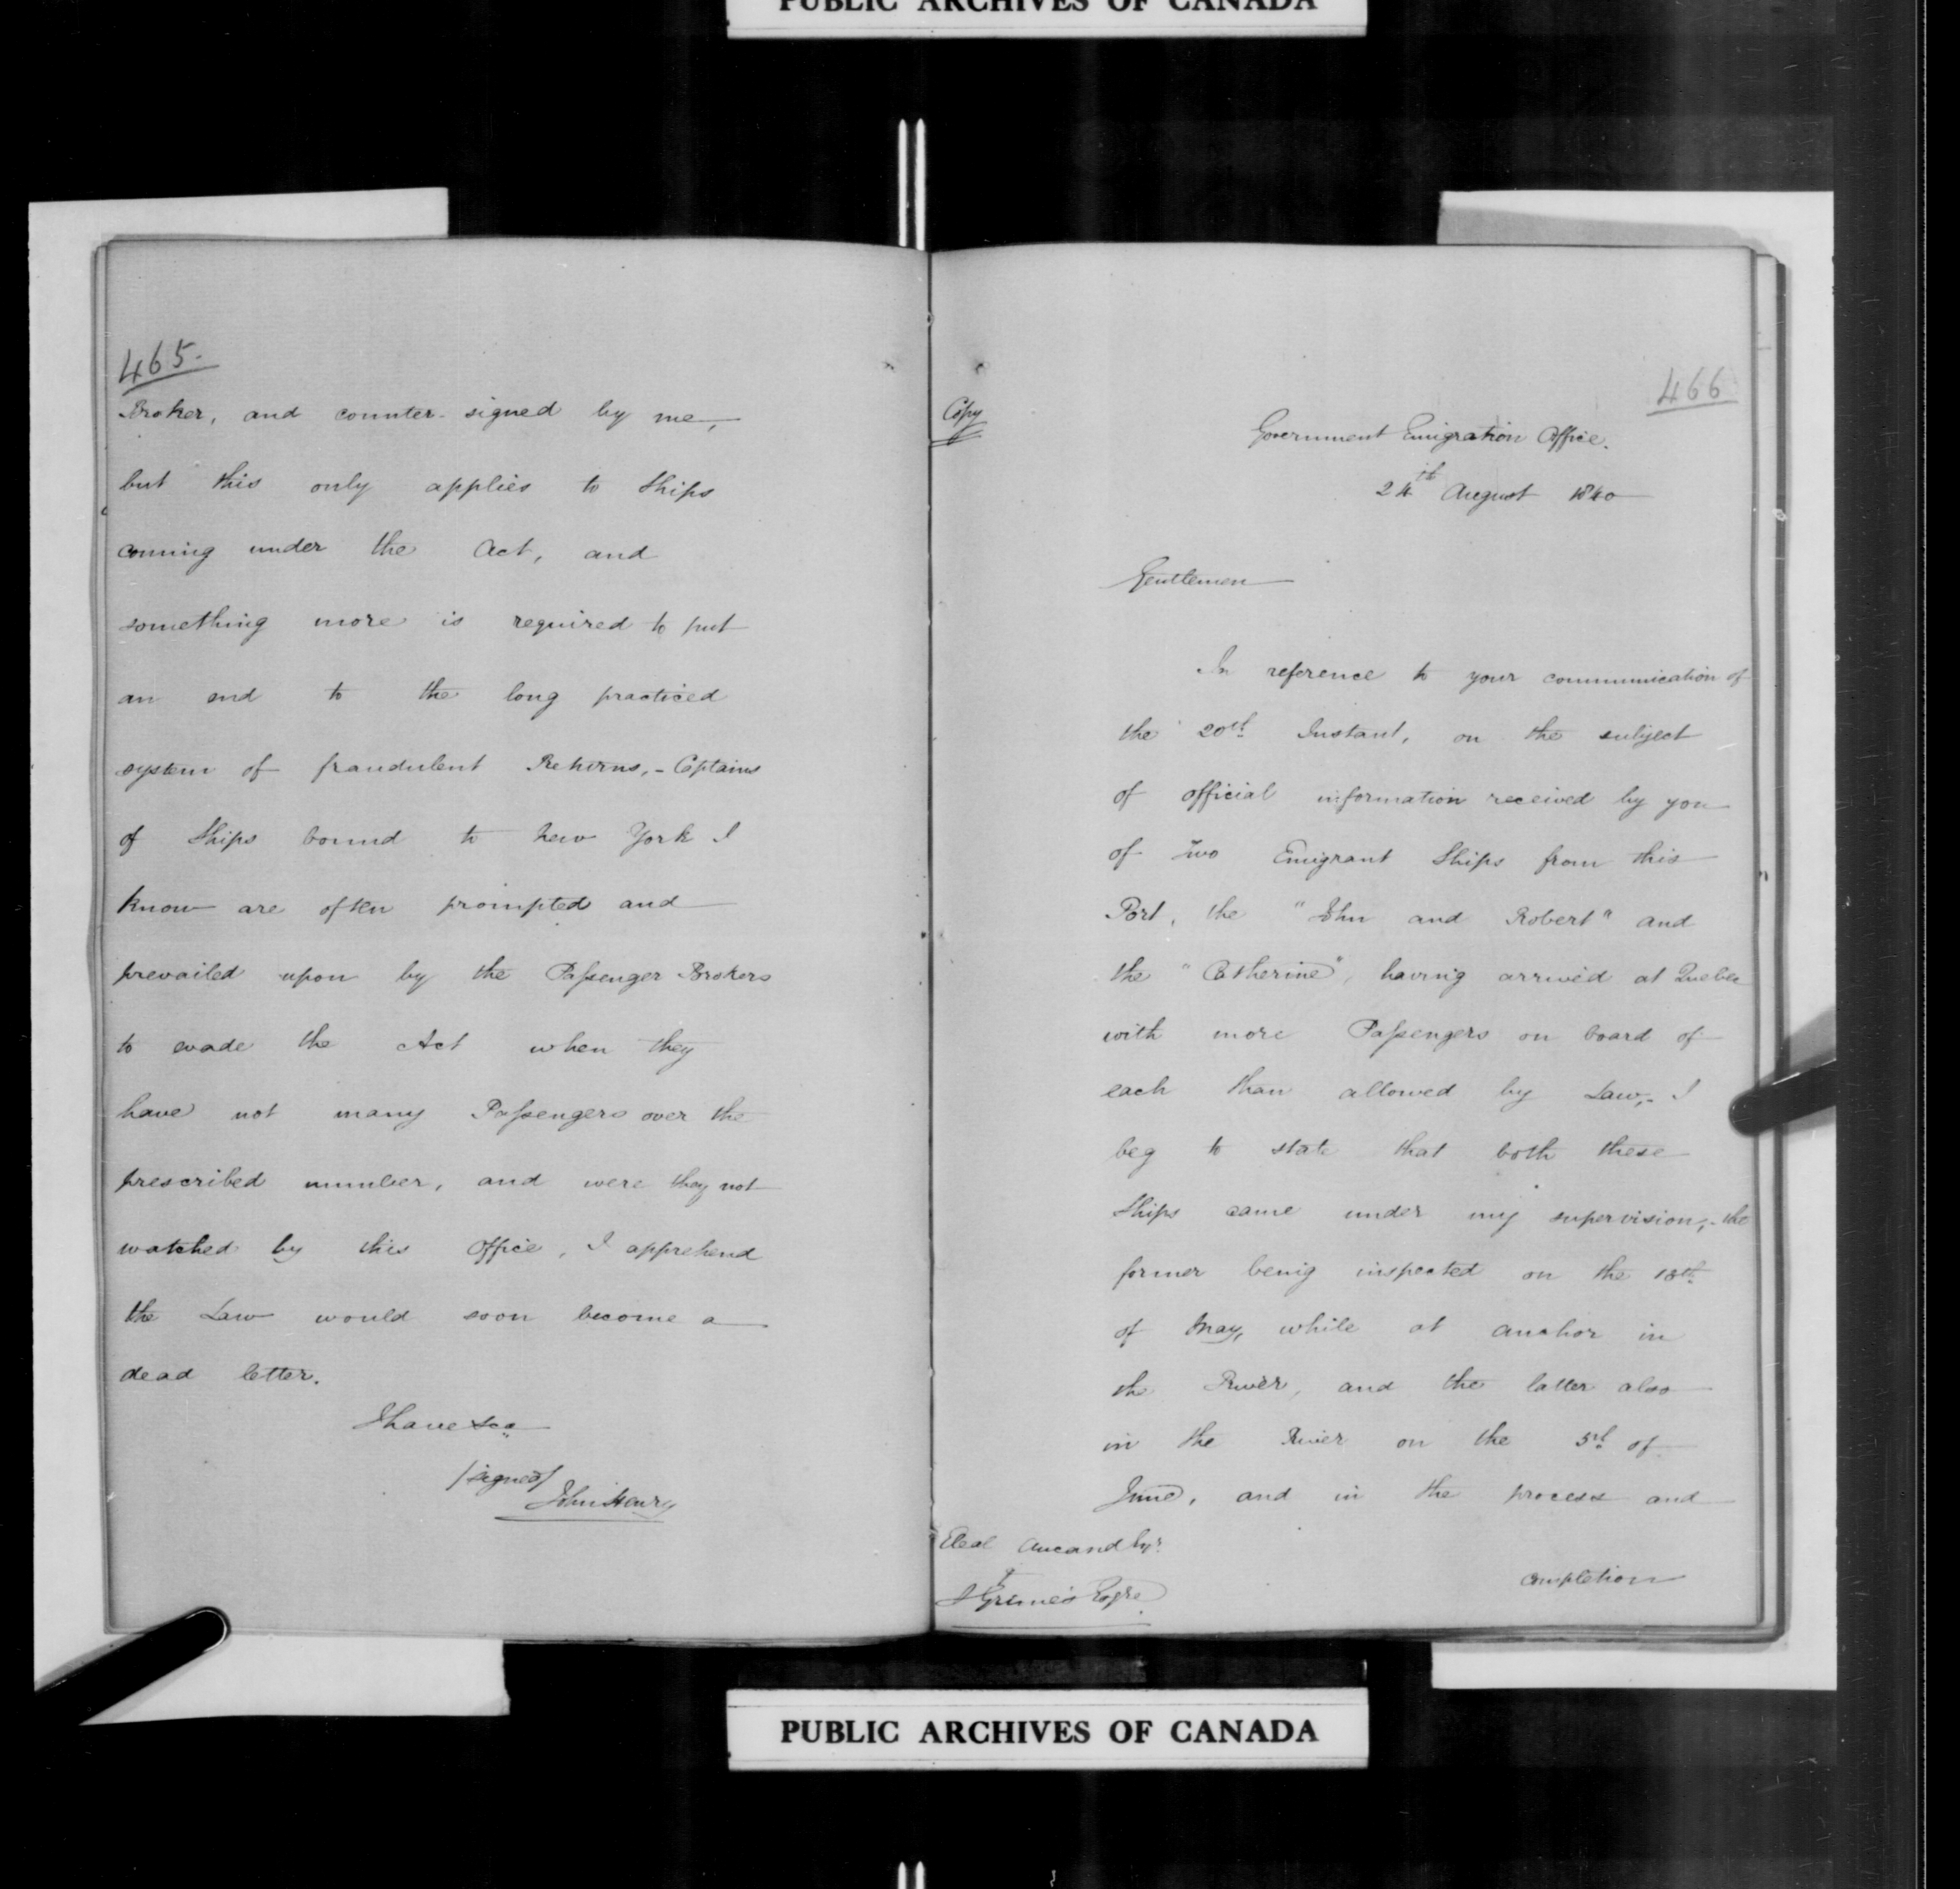 PUBLIC ARCHIVES OF CANADA
465.
Broker, and counter-signed by me,
but this only applies to Ships
coming under the Act, and
something more is required to put
an end to the long practiced
system of fraudulent Returns,- Captains
of Ships bound to New York I
know are often prompted and
prevailed upon by the Passenger Brokers
to evade the Act when they
have not many Passengers over the
prescribed number, and were they not
watched by this Office, I apprehend
the Law would soon become a
dead letter.
I have &ca
/signed/
John Henry
466
Copy
Government Emigration Office.
24th August 1840
Gentlemen
In reference to your communication of
the 20th Instant, on the subject
of official information received by you
of Two Emigrant Ships from this
Port, the "John and Robert" and
the "Catherine", having arrived at Quebec
with more Passengers on board of
each than allowed by Law,- I
beg to state that both these
Ships came under my supervision,- the
former being inspected on the 18th
of May, while at anchor in
the River, and the latter also
in the River on the 5th of
June, and in the process and
completion
Grimes Esqre
PUBLIC ARCHIVES OF CANADA